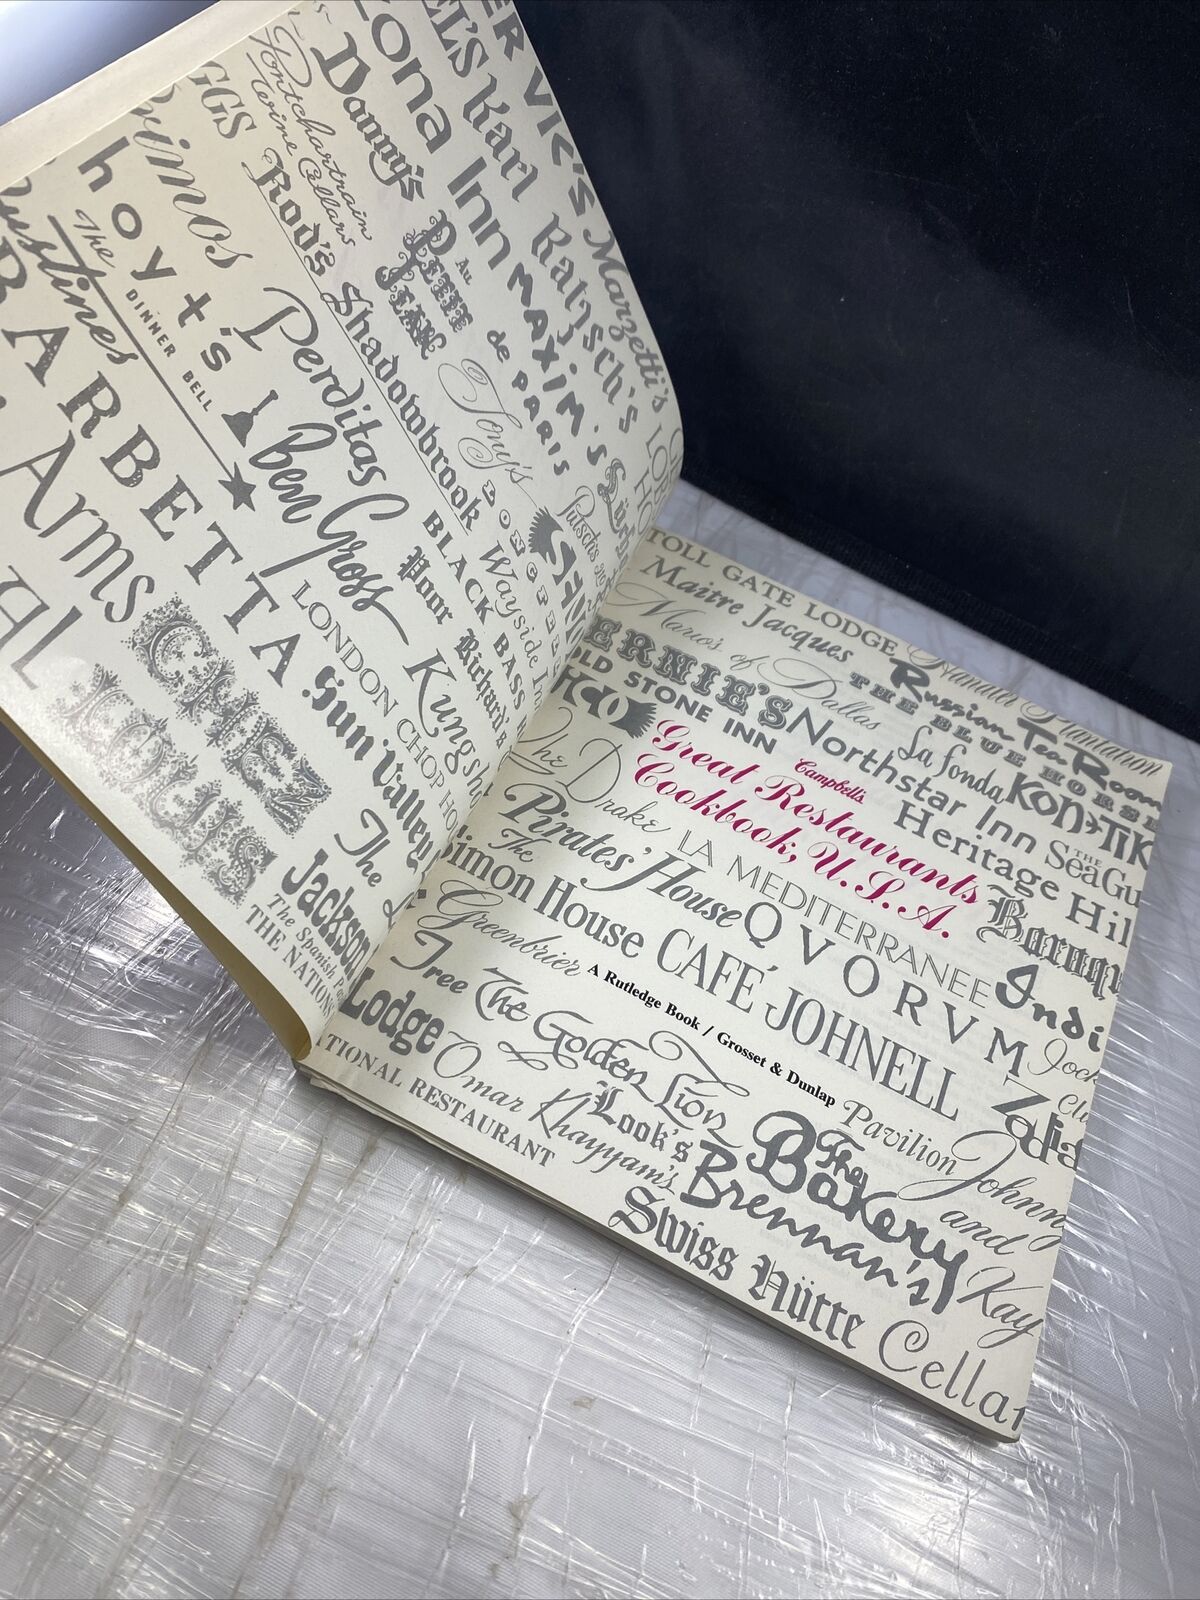 Danny's
Pontchartrain
Wine Cellars
Rod's
Shadowbrook
Karl
Ratzsch's
Marzetti's
Inn
MAXIM'S
de PARIS
Au
PETIT
JEAN
Tony's
hoyt's
The
DINNER BELL
Perditas
Ben Gross
BARBETTA
Arms
CHEZ
LOUIS
LONDON CHOP HO
BLACK BASS
Wayside Inn
Poor Richard's
Kungsho
Sun Valley
The
Jackson
The Spanish Pa
THE NATIONS
TOLL GATE LODGE
Maitre Jacques
Nanalli Plantation
Mario's of Dallas
Russian Tea Room
ERNIE'S
THE BLUE HORSE
OLD STONE INN
Northstar Inn
La fonda
KON-TIKI
Campbell's
Great Restaurants
Cookbook, U.S.A.
Heritage Hil
THE
SeaGu
The Drake
LA MEDITERRANEE
Pirates' House
QVORVM
Baroqu
Indi
The
Simon House
CAFE JOHNELL
Greenbrier
A Rutledge Book / Grosset & Dunlap
Jock
Clu
Tree
The Golden Lion
Pavilion
Zodia
Lodge
Omar Khayyam's
Look's
The
Bakery
Johnny
and
Kay
TIONAL RESTAURANT
Brennan's
Swiss Hütte
Cellar